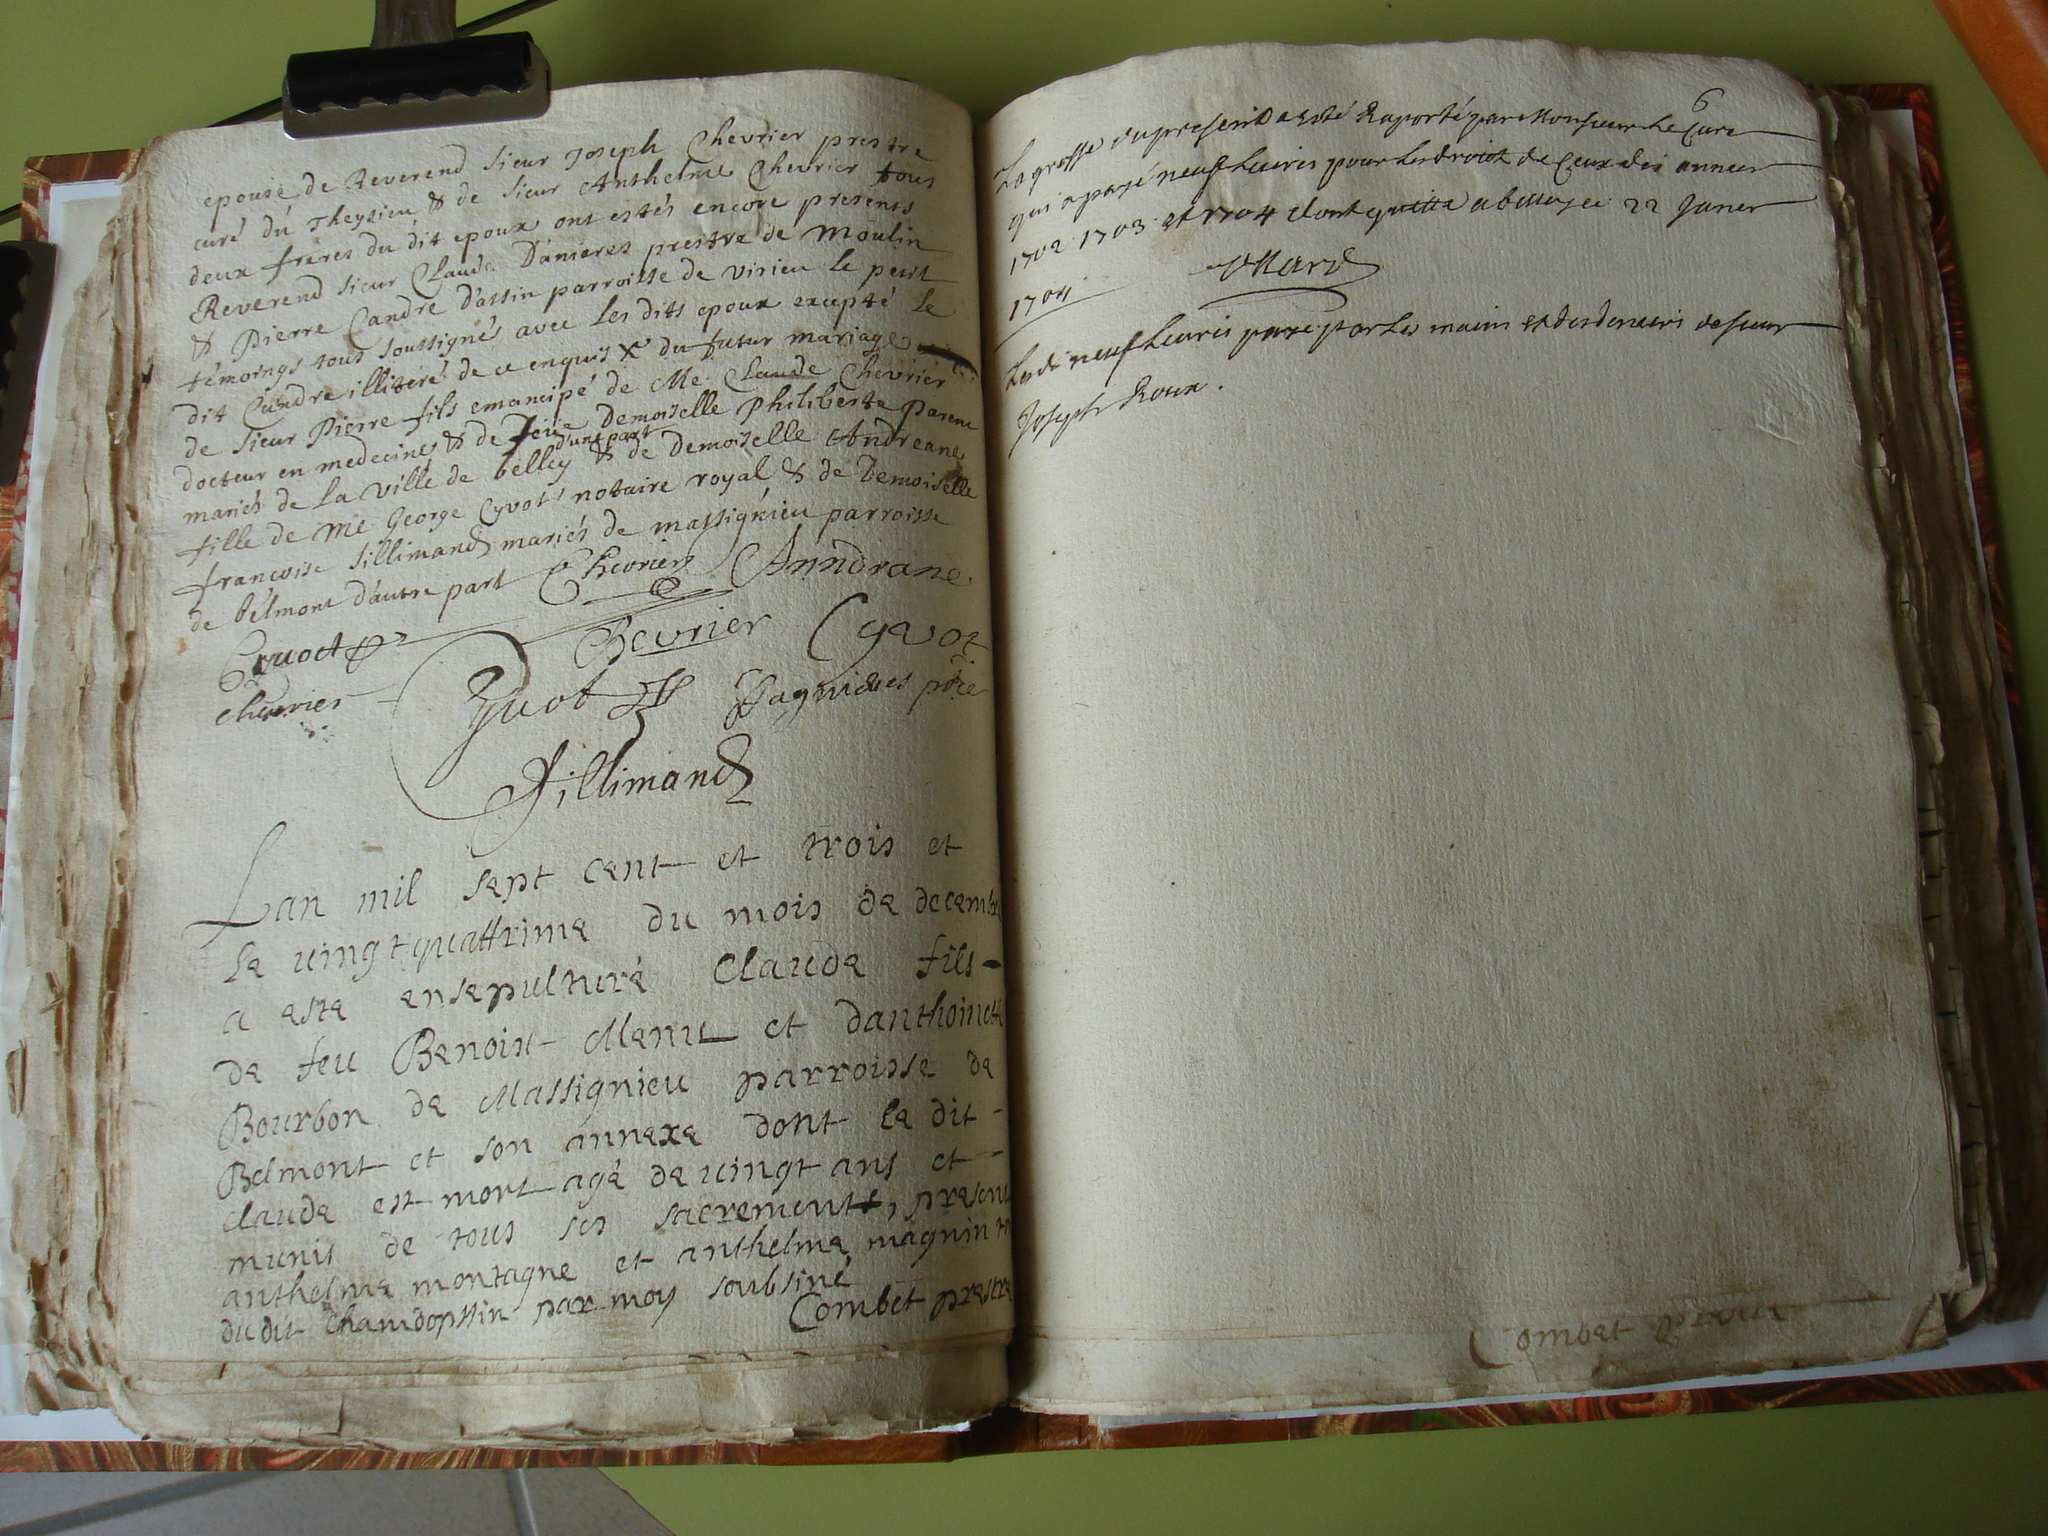 epouse de Reverend sieur Joseph Chevrier prestre
curé du Theysieu & de sieur Anthelme Chevrier tous
deux freres du dit epoux ont estés encore presents
Reverend sieur Claude D'anieres prestre de Moulin
& Pierre Candre d'assin parroisse de virieu le petit
témoings tous soussignés avec les dits epoux excepté le
dit Candre illiteré de ce enquis X du futur mariage
de sieur Pierre fils emancipé de Me Claude Chevrier
docteur en medecines & de feüe Demoiselle Philiberte parent
mariés de la ville de belley d'une part & de Demoiselle Andreane
fille de Me George Cyvot notaire royal & de Demoiselle
francoise sillimand mariés de massignieu parroisse
de bélmont d'autre part Chevrier Anndrane
Cyvoct
Chevrier Cyvot
chevrier Cyvot
sillimand
Lan mil sept cent et trois et
le vingt quattrime du mois de decembr
a este ensepulturé Claude fils
de feu Benoist Menu et danthoinette
Bourbon de Massignieu parroisse de
Belmont et son annexe dont le dit
claude est mort agé de vingt ans et
munis de tous ses sacrements, presents
anthelme montagne et anthelme magnin
du dit Chamdossin par moy soubsiné
Combet prestre
6
La grosse du present a esté Raporté par Monsieur le Curé
qui a payé neuf Livres pour les droict de Ceux des années
1702 1703 et 1704 dont quitta a belley ce 22 Janer
1704
Les di neuf Livres payé par les mains et des deniers de sieur
Joseph Roux.
Combet